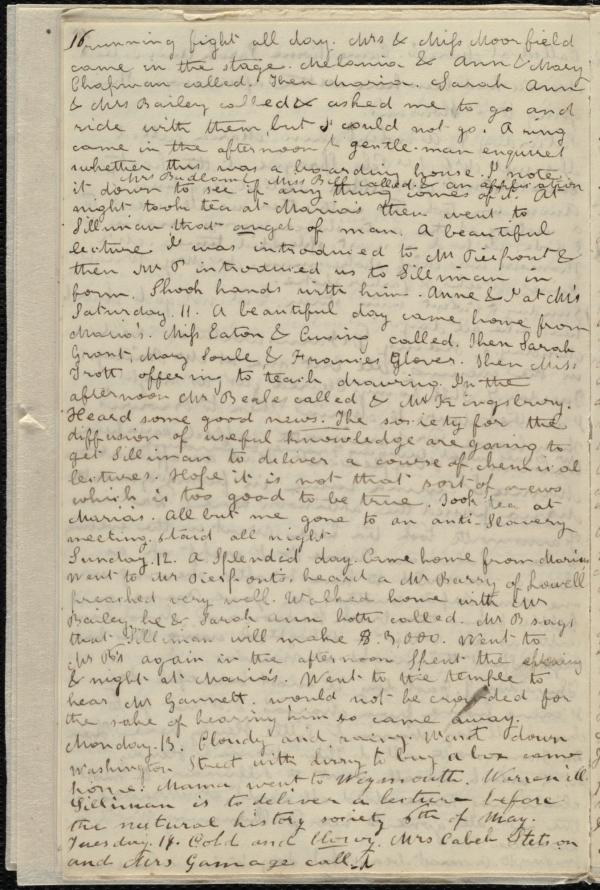 16 running fight all day. Mrs & Miss Moorfield
came in the stage. Melania & Ann & Mary
Chapman called. Then Maria. Sarah Ann
& Mrs Bailey called & asked me to go and
ride with them but I could not go. A ring
came in the afternoon & gentle-man enquired
whether this was a boarding house. I note
Mrs Budlong Miss Bill called. & an application
it down to see if any thing comes of it. At
night took tea at Marias then went to
Silliman that angel of man. A beautiful
lecture I was introduced to Mr Pierpont &
then Mr P introduced us to Silliman in
form. Shook hands with him. Anne & I at M's
Saturday. 11. A beautiful day came home from
Maria's. Miss Eaton & Cusing called. Then Sarah
Grant, Mary Soule & Frances Glover. Then Miss
Trott offering to teach drawing. In the
afternoon Mr Beale called & Mr Kingsbury.
Heard some good news. The society for the
diffusion of useful knowledge are going to
get Silliman to deliver a course of chemical
lectures. Hope it is not that sort of news
which is too good to be true. Took tea at
Maria's. All but me gone to an anti-Slavery
meeting. staid all night
Sunday. 12. A Splendid day. Came home from Marias
Went to Mr Pierpont's. heard a Mr Barry of Lowell
preached very well. Walked home with Mr
Bailey, he & Sarah ann both called. Mr B says
that Silliman will make $.3,000. Went to
Mr P's again in the afternoon Spent the evening
& night at Maria's. Went to the temple to
hear Mr Gannett. would not be crowded for
the sake of hearing him so came away.
Monday. 13. Cloudy and rainy. Went down
Washington Street with dizzy to buy a box came
home. Mama went to Weymouth. Warren ill
Silliman is to deliver a lecture before
the natural history society 6th of May.
Tuesday. 14. Cold and Clowy. Mrs Caleb Stetson
and Mrs Gamage call.d